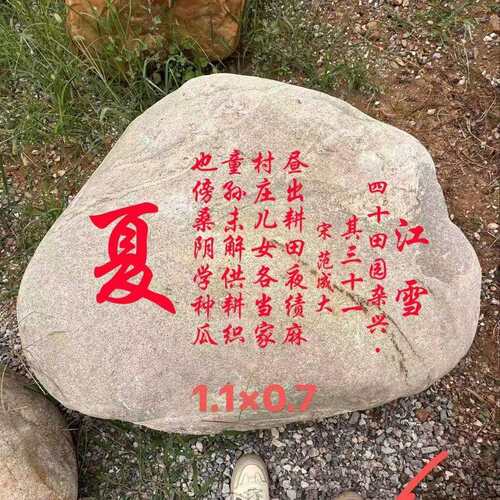 江雪
四十田园杂兴·
其三十一
宋 范成大
昼出耕田夜绩麻
村庄儿女各当家
童孙未解供耕织
也傍桑阴学种瓜
夏
1.1×0.7